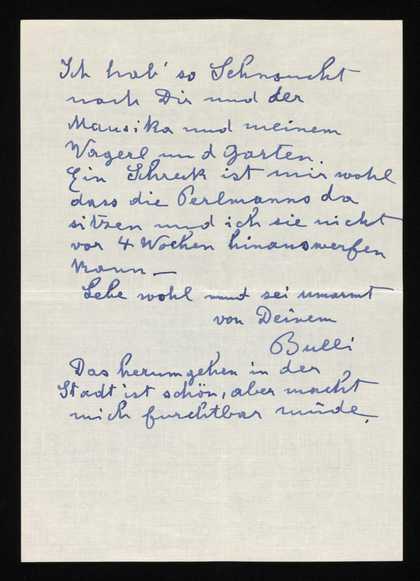 Ich hab' so Sehnsucht
nach Dir und der
Mausika und meinem
Wagerl und Garten.
Ein Schreck ist mir wohl
dass die Perlmanns da
sitzen und ich sie nicht
vor 4 Wochen hinauswerfen
kann —
Lebe wohl und sei umarmt
von Deinem
Bulli
Das herumgehen in der
Stadt ist schön, aber macht
mich furchtbar müde.